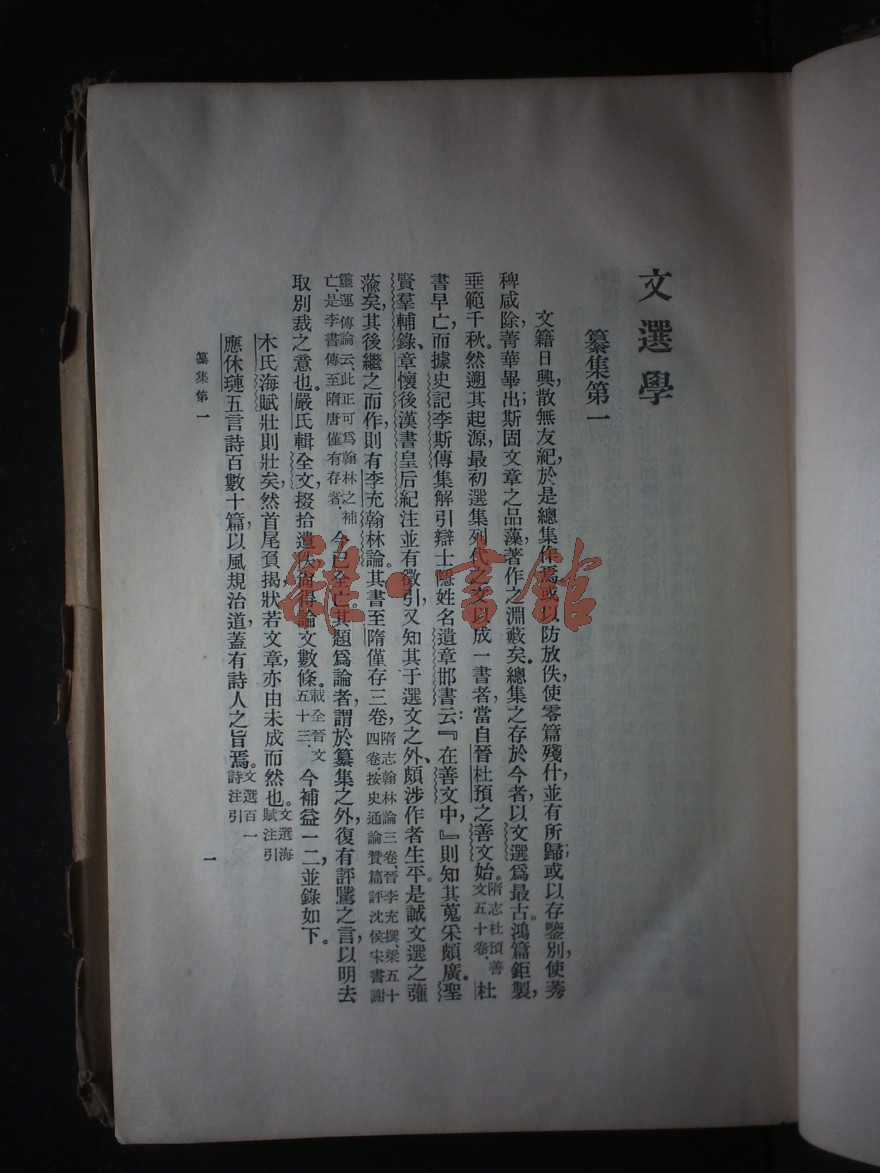 文選學
纂集第一
文籍日興，散無友紀，於是總集作焉。或以防放佚，使零篇殘什，並有所歸；或以存鑒別，使莠
稗咸除，菁華畢出；斯固文章之品藻，著作之淵藪矣。總集之存於今者，以文選爲最古。鴻篇鉅製，
垂範千秋。然遡其起源，最初選集列代之文以成一書者，當自晉杜預之善文始。隋志杜預善文五十卷。杜
書早亡，而據史記李斯傳集解引辯士隱姓名遺章邯書云：『在善文中，』則知其蒐采頗廣。聖
賢羣輔錄、章懷後漢書皇后紀注並有徵引，又知其于選文之外，頗涉作者生平。是誠文選之蘿
蕍矣。其後繼之而作，則有李充翰林論。其書至隋僅存三卷，隋志翰林論三卷，晉李充撰，梁五十四卷。按史通論贊篇評沈侯宋書謝
靈運傳論云，此正可爲翰林之補亡，是李書傳至隋唐僅有存者。今已全亡。其題爲論者，謂於纂集之外，復有評騭之言，以明去
取別裁之意也。嚴氏輯全文，掇拾遺佚，尚得論文數條。載全晉文五十三。今補益一二，並錄如下。
木氏海賦，壯則壯矣，然首尾負揭，狀若文章，亦由未成而然也。文選海賦注引
應休璉五言詩百數十篇，以風規治道，蓋有詩人之旨焉。文選百一詩注引
纂集第一
一
雜·書館